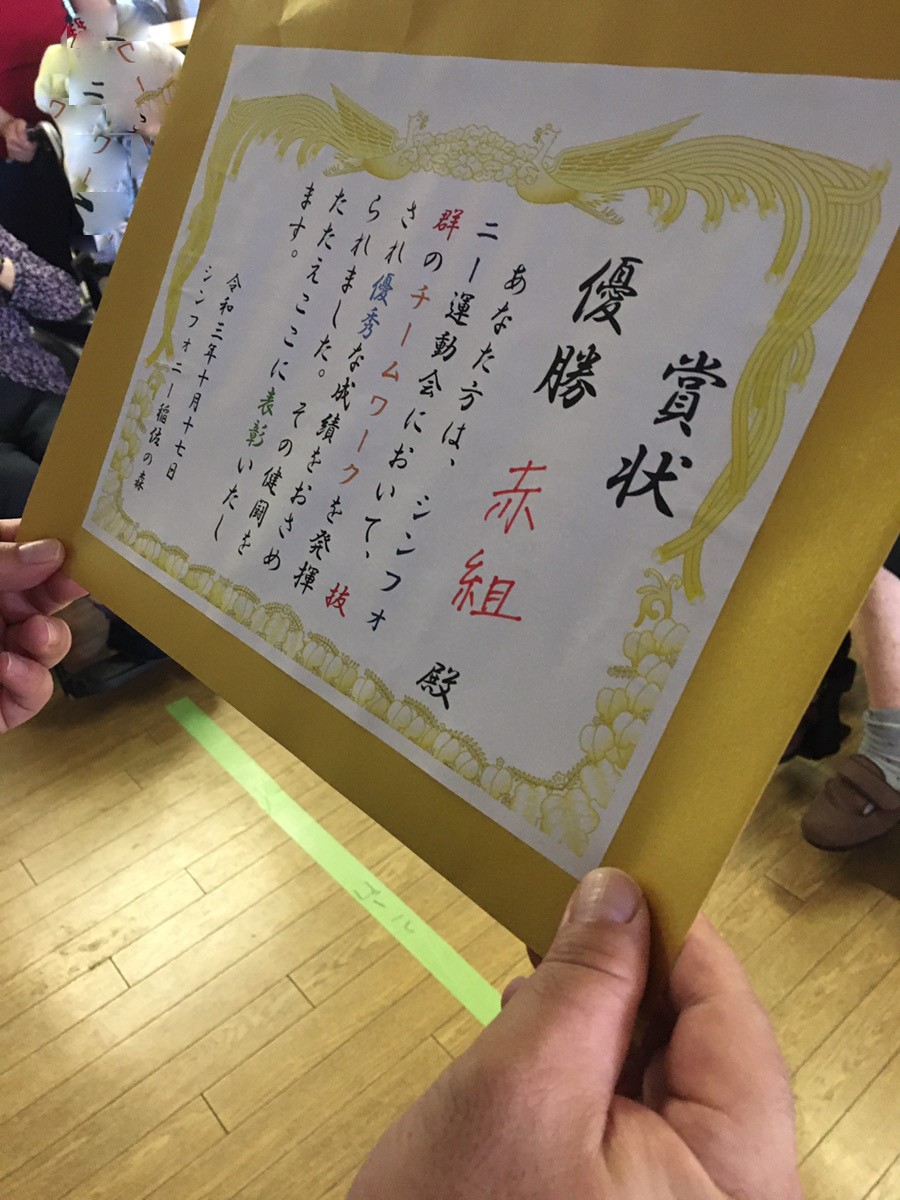 賞状
優勝 赤組 殿
あなた方は、シンフォ
ニー運動会において、抜
群のチームワークを発揮
され優秀な成績をおさめ
られました。その健闘を
たたえここに表彰いたし
ます。
令和三年十月十七日
シンフォニー稲佐の森
ゴール